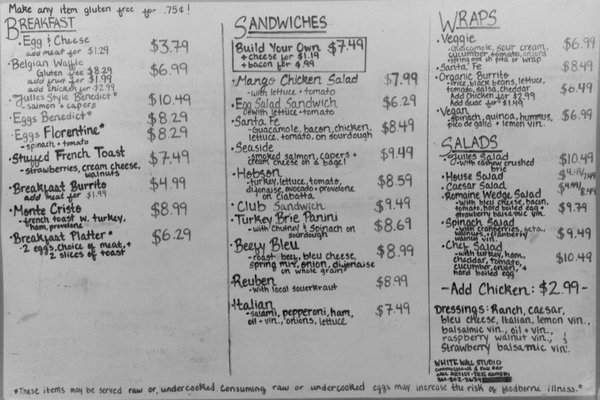 Make any item gluten free for .75¢!
BREAKFAST
Egg & Cheese $3.79
add meat for $1.29
Belgian Waffle $6.99
Gluten free $8.29
add fruit for $1.99
add chicken for $2.99
Julles Style Benedict* $10.49
salmon + capers
Eggs Benedict* $8.29
Eggs Florentine* $8.29
spinach + tomato
Stuffed French Toast $7.49
strawberries, cream cheese,
walnuts
Breakfast Burrito $4.99
add meat for $1.99
Monte Cristo $8.99
french toast w. turkey,
ham, provolone
Breakfast Platter* $6.29
2 eggs, choice of meat, +
2 slices of toast
SANDWICHES
Build Your Own $7.49
+ cheese for $1.19
+ bacon for $.99
Mango Chicken Salad $7.99
with lettuce + tomato
Egg Salad Sandwich $6.29
with lettuce + tomato
Santa Fe $8.49
guacamole, bacon, chicken,
lettuce, tomato, on sourdough
Seaside $9.49
smoked salmon, capers +
cream cheese on a bagel
Hobson $8.59
turkey, lettuce, tomato,
dijonaise, avocado + provolone
on ciabatta
Club Sandwich $9.49
Turkey Brie Panini $8.69
with chutney & spinach on
sourdough
Beefy Bleu $8.99
roast beef, bleu cheese,
spring mix, onion, dijonaise
on whole grain
Reuben $8.99
with local sauerkraut
Italian $7.49
salami, pepperoni, ham,
oil + vin., onions, lettuce
WRAPS
Veggie $6.99
guacamole, sour cream,
cucumber, tomato, onions
on pita or wrap
Santa Fe $8.49
Organic Burrito $6.49
rice, black beans, lettuce,
tomato, salsa, cheddar
Add chicken for $2.99
Add guac for $1.49
Vegan $6.99
spinach, quinoa, hummus,
pico de gallo + lemon vin.
SALADS
Julles Salad $10.49
with cashew crusted
brie
House Salad
Caesar Salad
Romaine Wedge Salad $9.79
with bleu cheese, bacon,
tomato, hard boiled egg +
strawberry balsamic vin.
Spinach Salad $9.49
with cranberries, feta,
walnuts + cranberry
walnut vin.
Chef Salad $10.49
with turkey, ham,
cheddar, tomato,
cucumber, onion, +
hard boiled egg
-Add Chicken: $2.99-
Dressings: Ranch, caesar,
bleu cheese, Italian, lemon vin.,
balsamic vin., oil + vin.,
raspberry walnut vin., &
Strawberry balsamic vin.
WHITE WALL STUDIO
*These items may be served raw or, undercooked. Consuming raw or undercooked eggs may increase the risk of foodborne illness.*